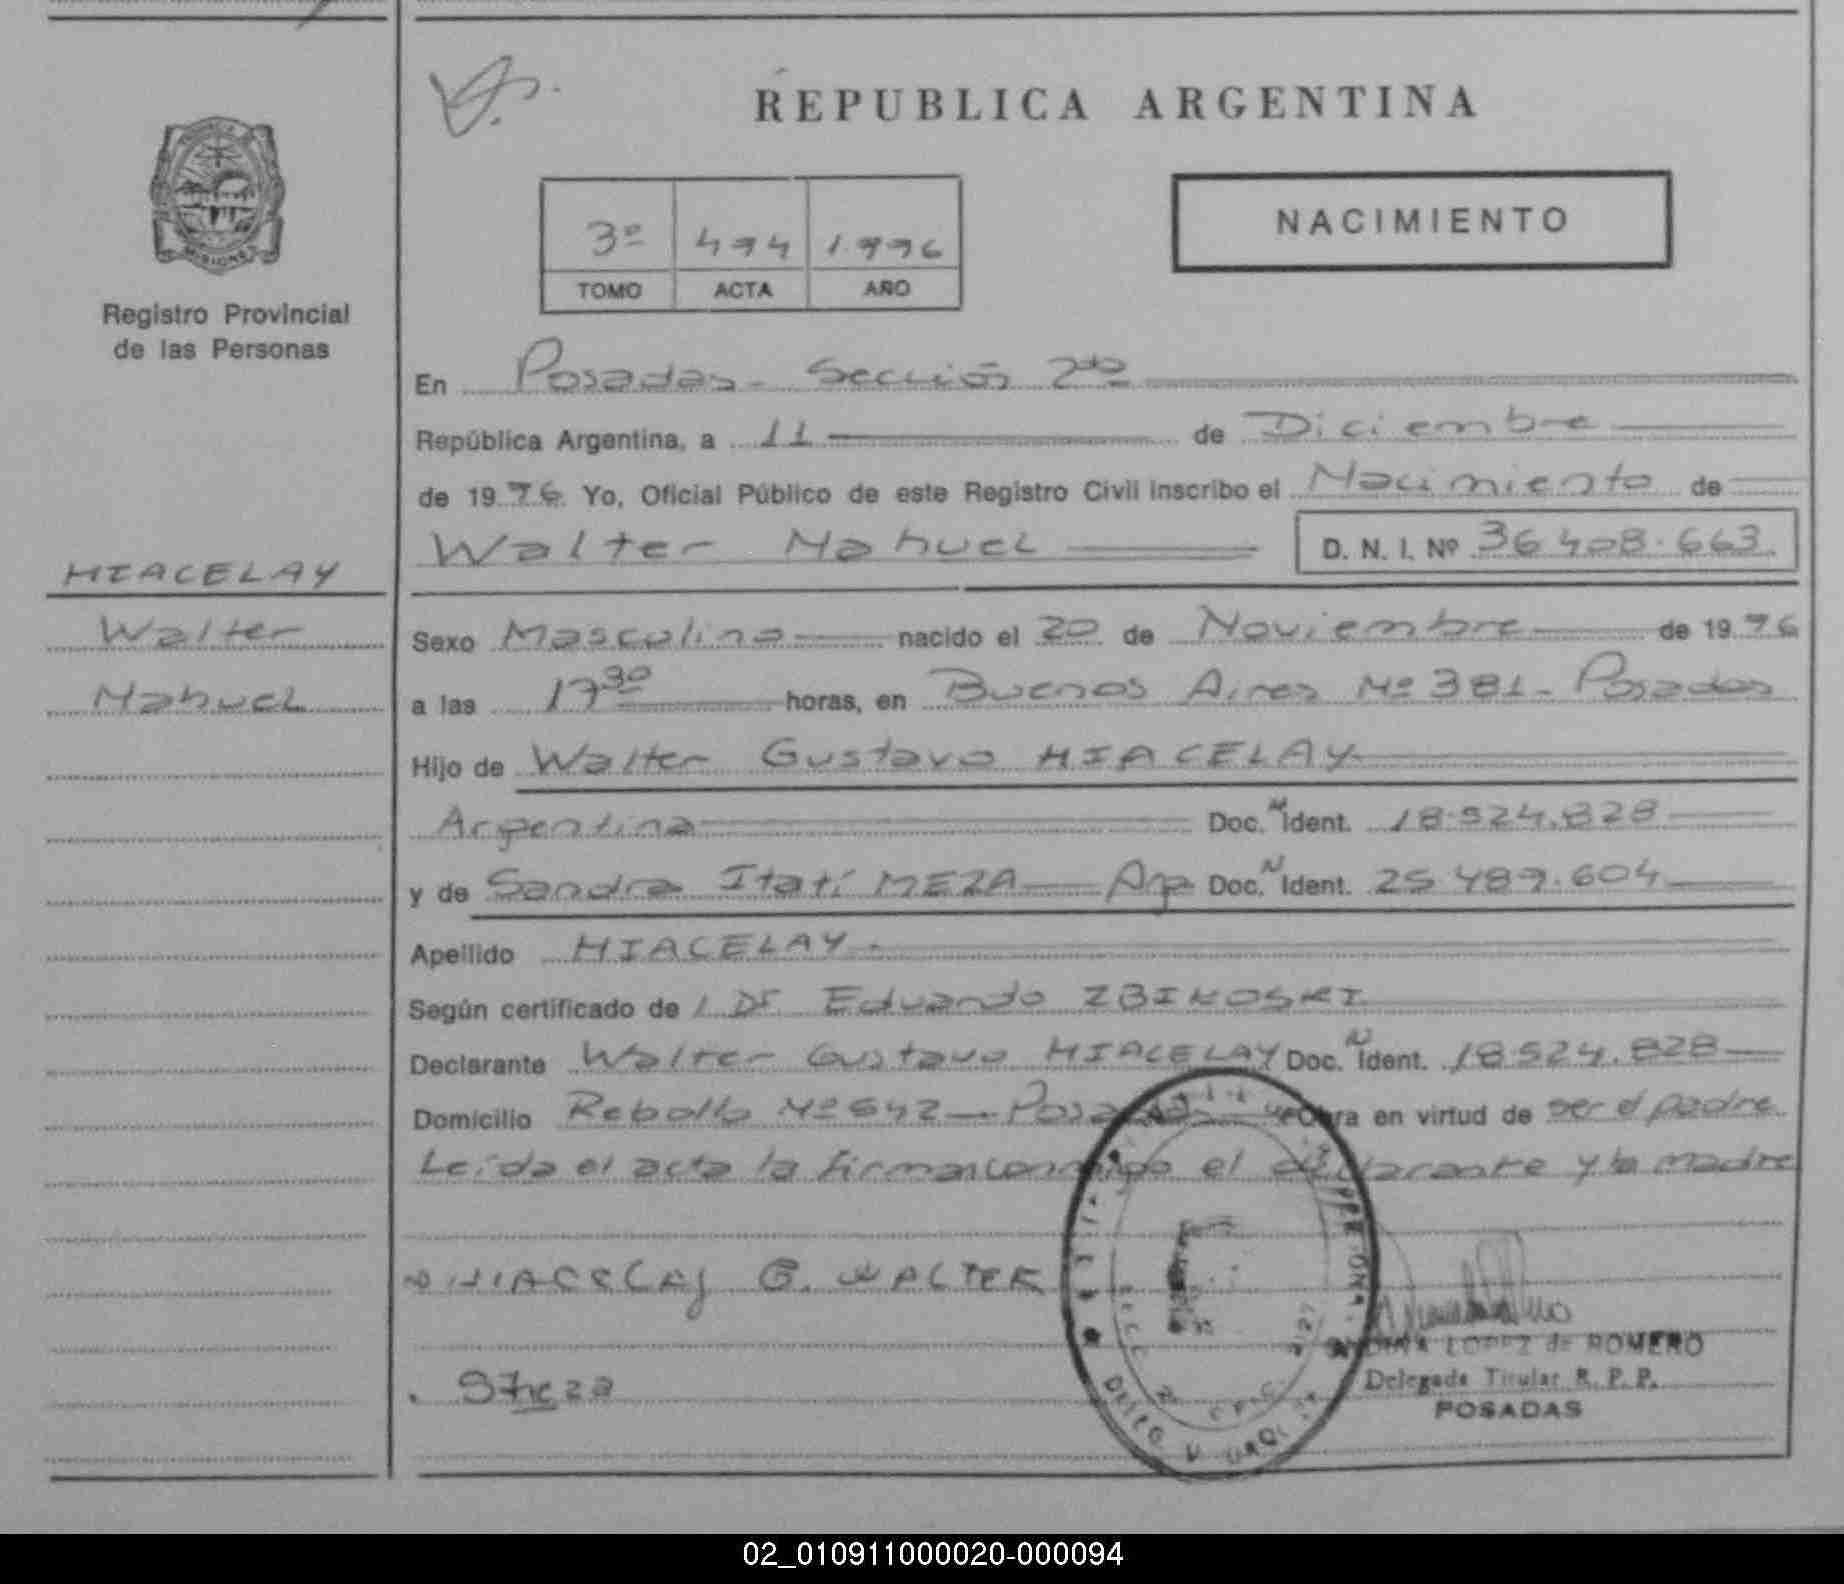 REPUBLICA ARGENTINA
NACIMIENTO
3º 494 1.996
TOMO ACTA AÑO
MISIONES
Registro Provincial
de las Personas
En Posadas - Sección 2da
República Argentina, a 11 de Diciembre
de 1996 Yo, Oficial Público de este Registro Civil inscribo el Nacimiento de
Walter Nahuel D. N. I. Nº 36 408.663
HIACELAY
Walter
Nahuel
Sexo Masculino nacido el 20 de Noviembre de 1996
a las 17 30 horas, en Buenos Aires Nº 381 - Posadas
Hijo de Walter Gustavo HIACELAY
Argentina Doc. N Ident. 18.524.828
y de Sandra Itatí MEZA Arg Doc. N Ident. 25.489.604
Apellido HIACELAY.
Según certificado de / Dr Eduardo ZBIKOSKI
Declarante Walter Gustavo HIACELAY Doc. N Ident. 18.524.828
Domicilio Rebollo Nº 642 - Posadas Obra en virtud de ser el padre
Leída el acta la firman conmigo el declarante y la madre
HIACELAY G. WALTER
LOPEZ de ROMERO
Delegada Titular R. P. P.
POSADAS
02_010911000020-000094